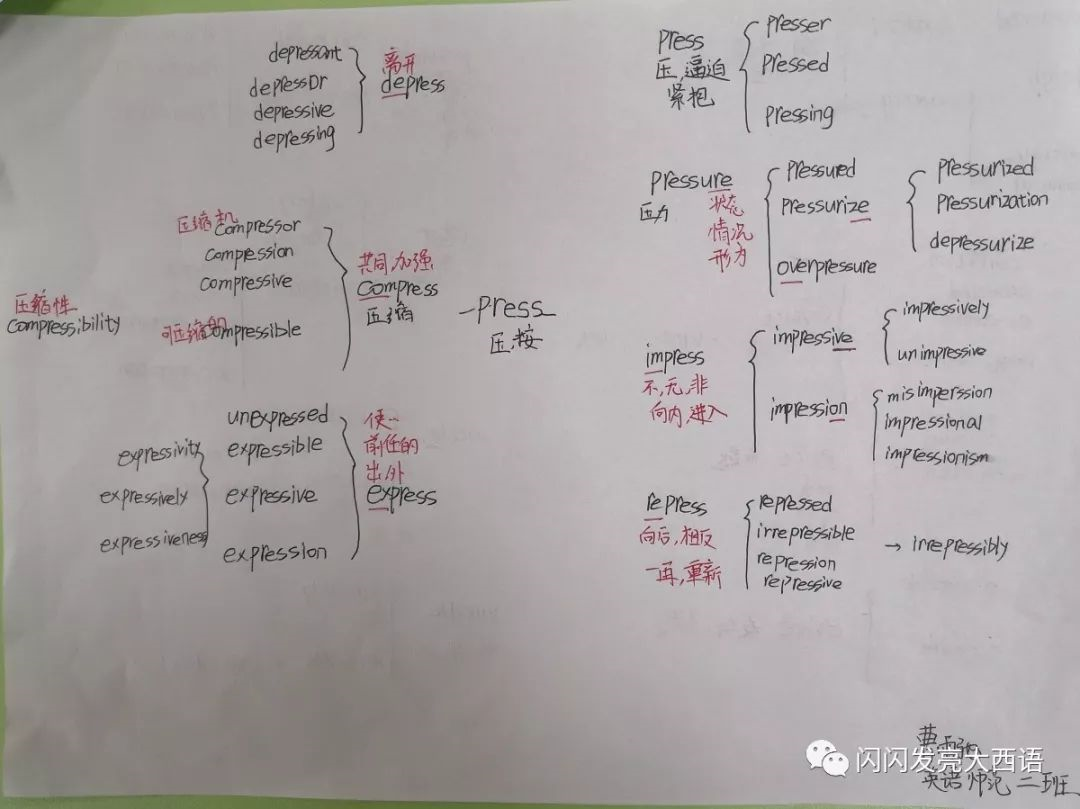 depressant
depressor
depressive
depressing
离开
depress
压缩机
compressor
compression
compressive
压缩性
compressibility
可压缩的
compressible
共同,加强
compress
压缩
unexpressed
expressible
expressive
expression
expressivity
expressively
expressiveness
使…
前任的
出,外
express
-press
压,按
press
压,逼迫
紧抱
presser
pressed
pressing
pressure
压力
状态
情况
形为
pressured
pressurize
overpressure
pressurized
pressurization
depressurize
impress
不,无,非
向内,进入
impressive
impression
impressively
unimpressive
misimperssion
impressional
impressionism
repress
向后,相反
一再,重新
repressed
irrepressible
repression
repressive
→ irrepressibly
闪闪发亮大西语
英语师范二班